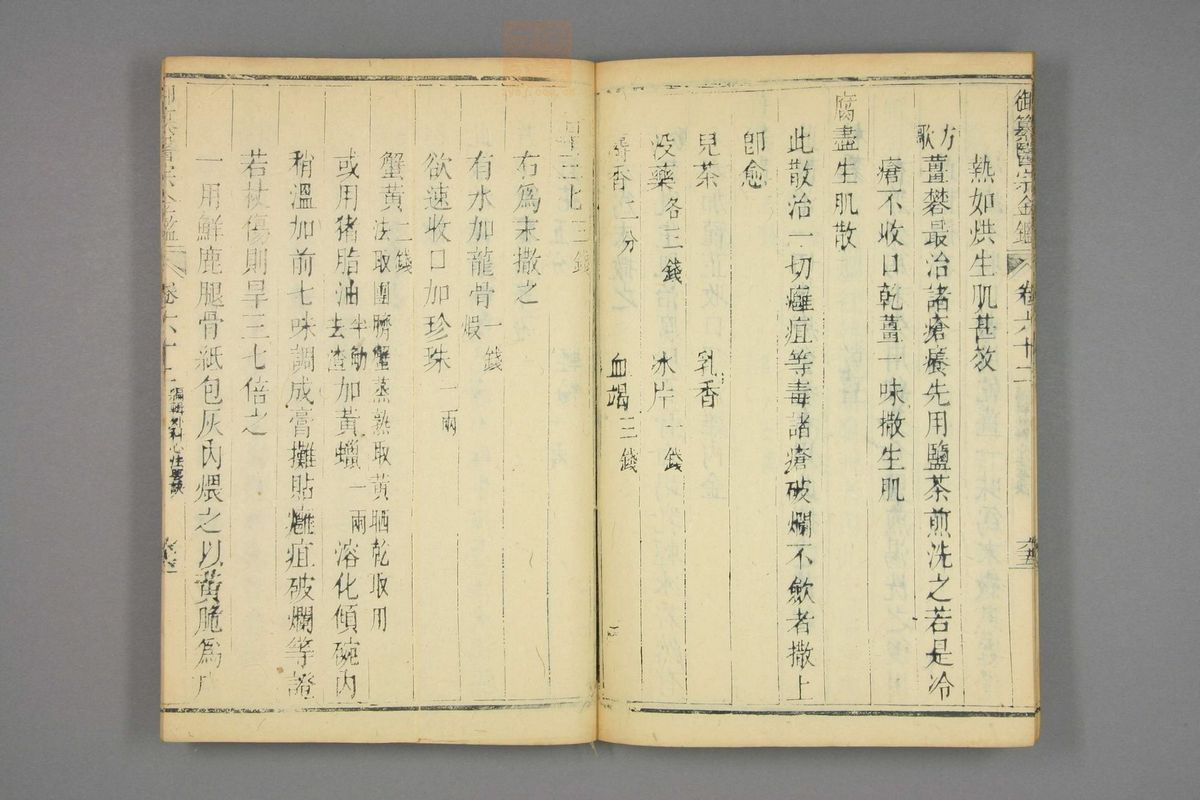 御纂醫宗金鑑 卷六十二
熱如烘生肌甚效
方歌 薑礬最治諸瘡癢先用鹽茶煎洗之若是冷
瘡不收口乾薑一味撒生肌
腐盡生肌散
此散治一切癰疽等毒諸瘡破爛不歛者撒上
卽愈
兒茶 乳香
没藥各三錢 冰片一錢
香二分 血竭三錢
三七三錢
右爲末撒之
有水加龍骨煅一錢
欲速收口加珍珠一兩
蟹黃二錢法取團臍蟹蒸熟取黃晒乾取用
或用猪脂油半觔去渣加黃蠟一兩溶化傾碗內
稍溫加前七味調成膏攤貼癰疽破爛等證
若杖傷則旱三七倍之
一用鮮鹿腿骨紙包灰內煨之以黃脆爲
卷六十二 編輯外科心法要訣